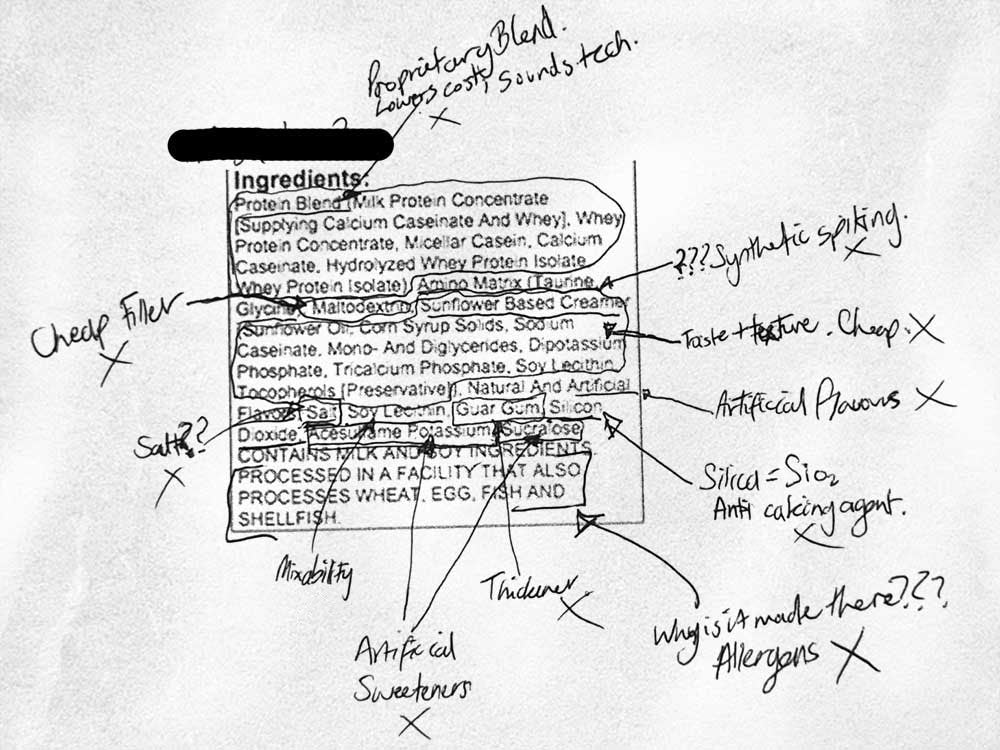 Proprietary Blend.
Lowers cost, sounds tech.
Ingredients:
Protein Blend (Milk Protein Concentrate
[Supplying Calcium Caseinate And Whey], Whey
Protein Concentrate, Micellar Casein, Calcium
Caseinate, Hydrolyzed Whey Protein Isolate
Whey Protein Isolate) Amino Matrix (Taurine,
Glycine, Maltodextrin, Sunflower Based Creamer
(Sunflower Oil, Corn Syrup Solids, Sodium
Caseinate, Mono- And Diglycerides, Dipotassium
Phosphate, Tricalcium Phosphate, Soy Lecithin,
Tocopherols [Preservative]), Natural And Artificial
Flavors, Salt, Soy Lecithin, Guar Gum, Silicon
Dioxide, Acesulfame Potassium, Sucralose
CONTAINS MILK AND SOY INGREDIENTS
PROCESSED IN A FACILITY THAT ALSO
PROCESSES WHEAT, EGG, FISH AND
SHELLFISH.
???Synthetic spiking.
Cheap Filler
Taste + texture. Cheap.
Artificial Flavours
Salt??
Silica = SiO2
Anti caking agent.
Mixability
Thickener
Artificial
Sweeteners
Why is it made there???
Allergens